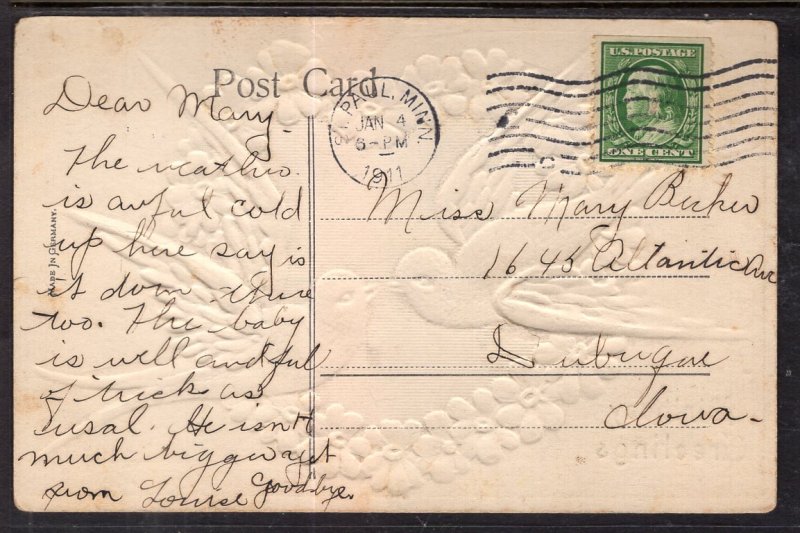 Post Card
ST. PAUL, MINN.
JAN 4
6-PM
1911
U.S. POSTAGE
ONE CENT
MADE IN GERMANY.
Dear Mary
The weather
is awful cold
up here say is
it down there
too. The baby
is well and ful
of trick as
usal. He isn't
much bigger yet
from Louise Goodbye.
Miss Mary Becker
1645 Atlantic Ave
Dubuque
Iowa-